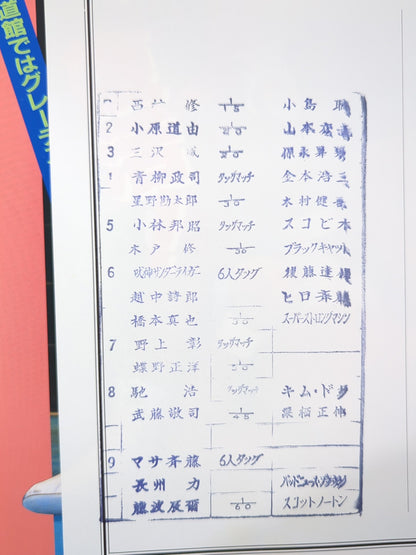 道館ではグレー
西村 修 1/15 小島 聡
2 小原道由 1/20
3 三沢 威 1/20 保永昇男
青柳政司 タッグマッチ 金本浩二
星野勘太郎 木村健悟
5 小林邦昭 タッグマッチ スコピオ
木戸 修 1/30 ブラックキャット
6 獣神サンダーライガー 6人タッグ 後藤達俊
越中詩郎 ヒロ斉藤
橋本真也 スーパーストロングマシン
7 野上 彰 タッグマッチ
蝶野正洋
8 馳 浩 タッグマッチ キム・ドク
武藤敬司 1/45 栗栖正伸
9 マサ斉藤 6人タッグ
長州 力
藤波辰爾 1/60 スコットノートン